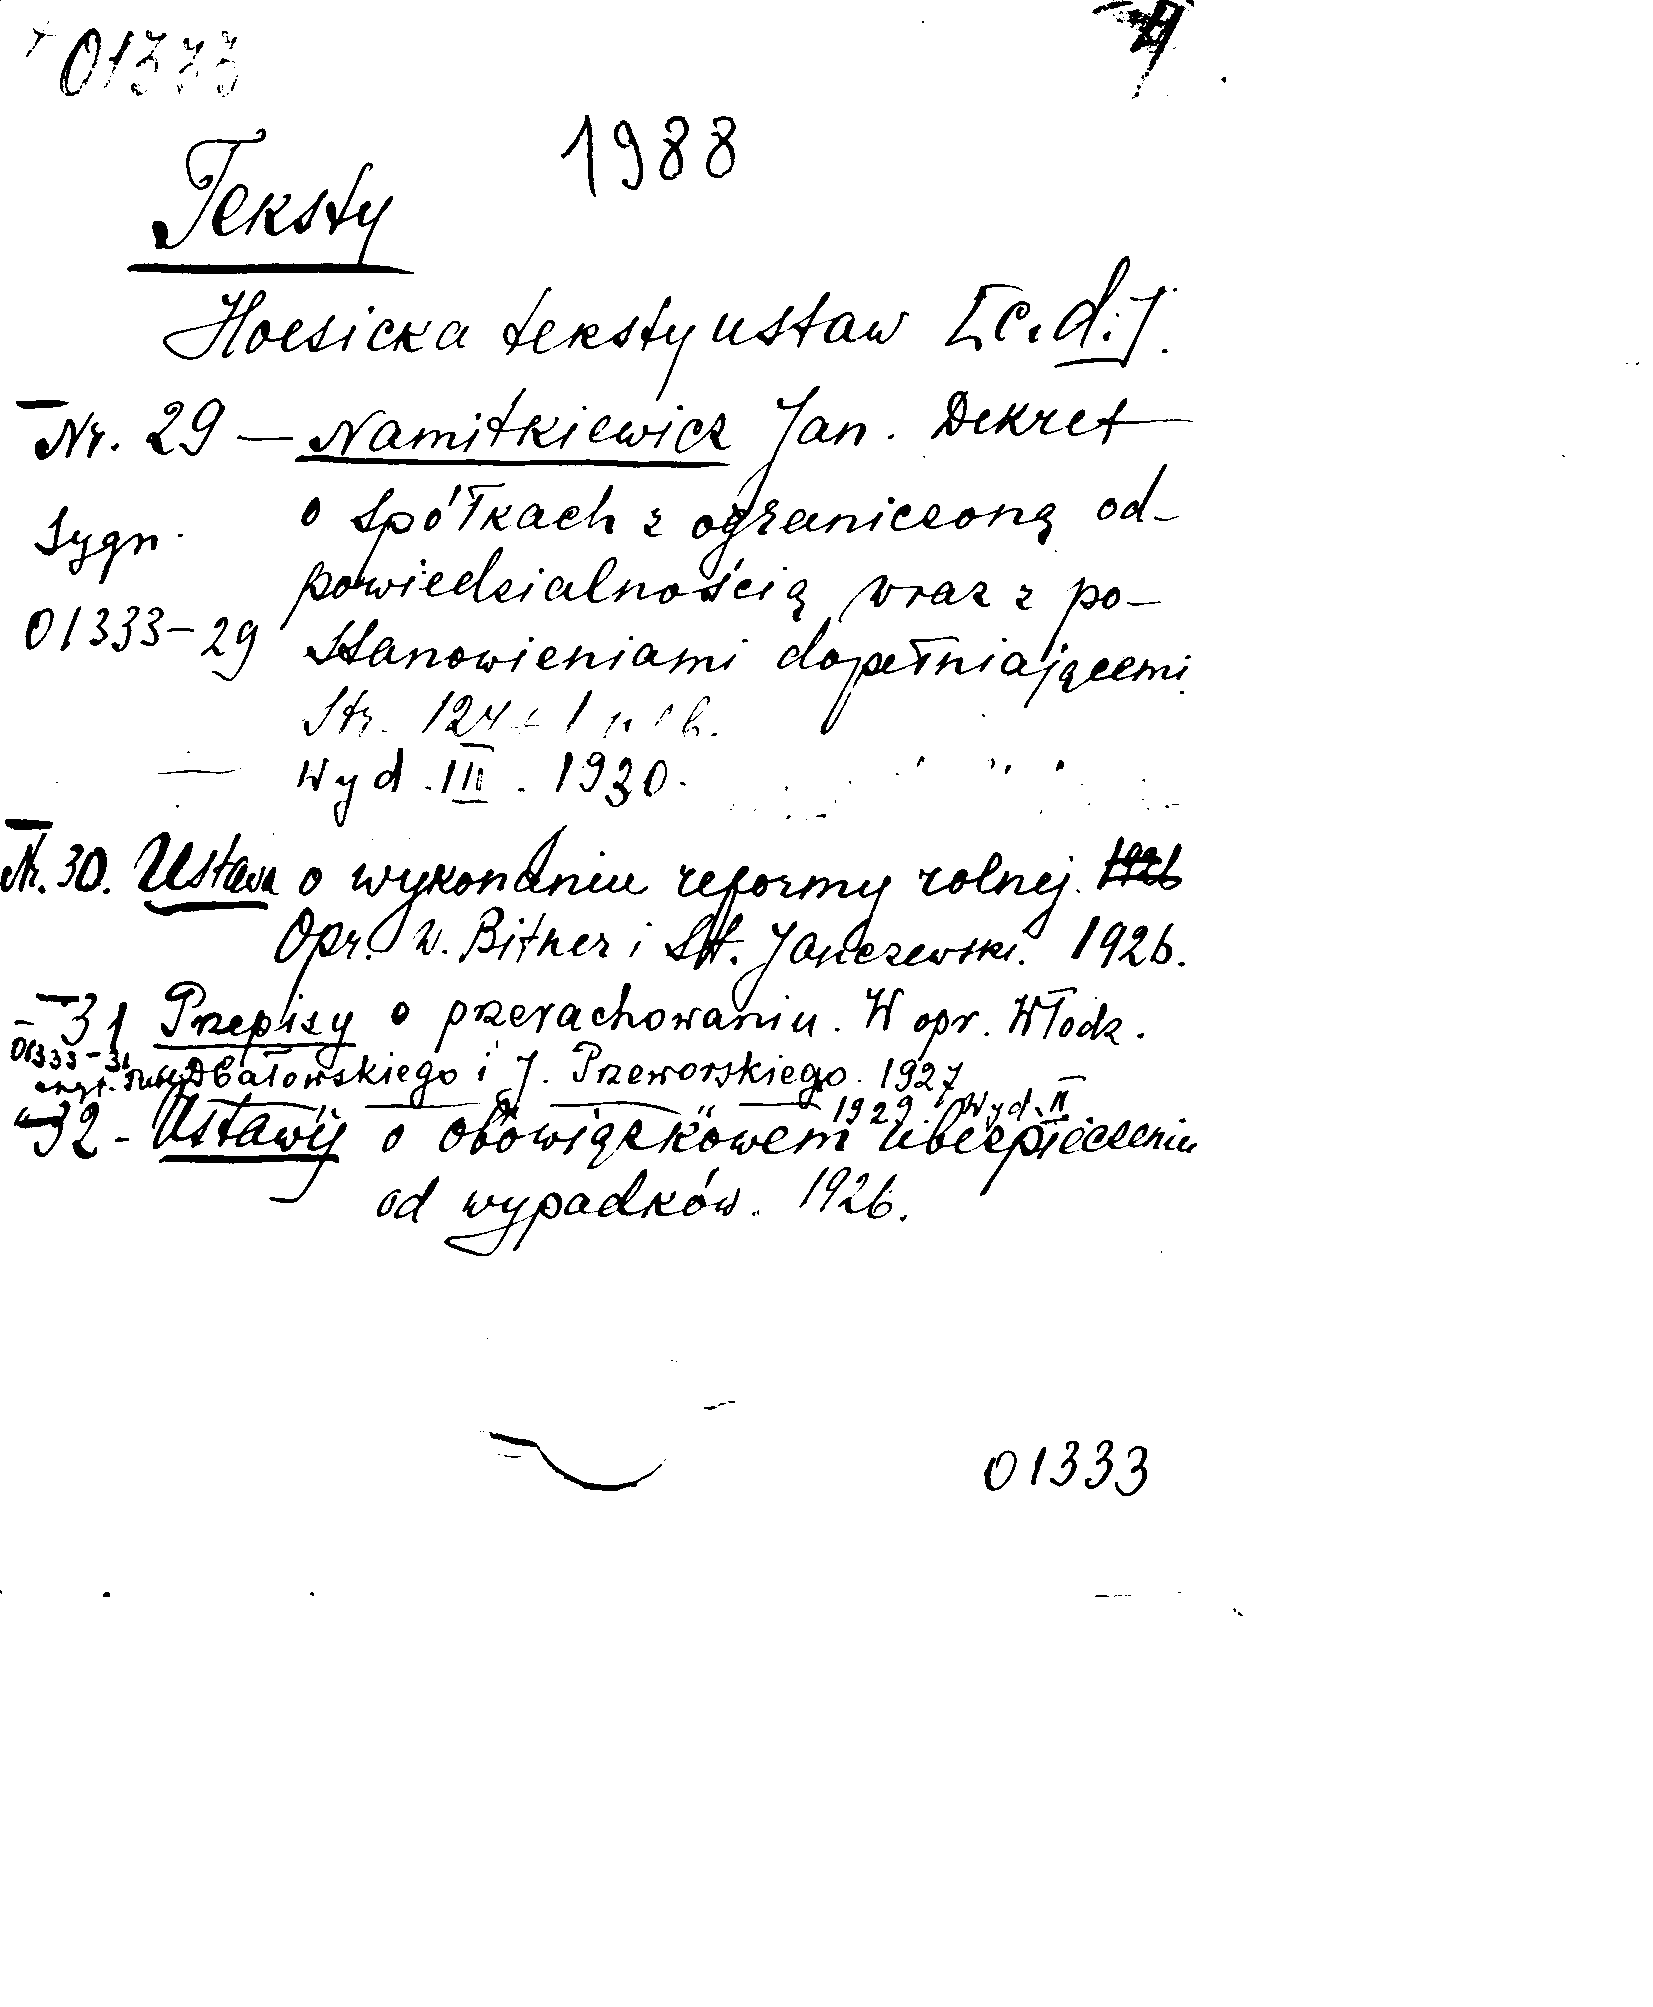 01333
1988
Teksty
Hoesicka teksty ustaw [c.d.].
Nr. 29 — Namitkiewicz Jan. Dekret
o spółkach z ograniczoną od-
Sygn.
powiedzialnością wraz z po-
01333-29
stanowieniami dopełniającemi
Str. 124 + 1 nlb.
Wyd. III. 1930.
Nr. 30. Ustawa o wykonaniu reformy rolnej. 1926
Opr. W. Bitner i St. Janczewski. 1926.
—31 Przepisy o przerachowaniu. W opr. Włodz.
01333-31
Dbałowskiego i J. Przeworskiego. 1927
1929 Wyd. II
"32 - Ustawy o obowiązkowem ubezpieczeniu
od wypadków. 1926.
01333